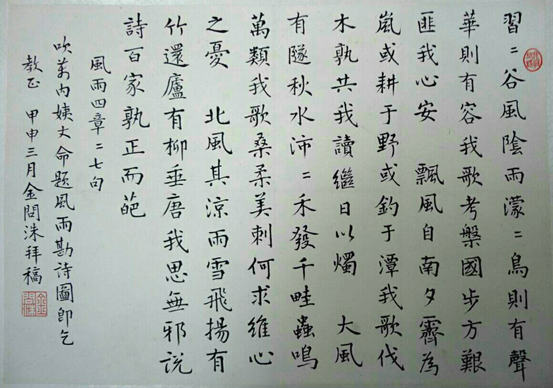 習二谷風陰雨濛二鳥則有聲
華則有容我歌考槃國步方艱
匪我心安 飄風自南夕霽為
嵐或耕于野或釣于潭我歌伐
木孰共我讀繼日以燭 大風
有隧秋水沛二禾發千畦蟲鳴
萬類我歌桑柔美刺何求維心
之憂 北風其涼雨雪飛揚有
竹還廬有柳垂唐我思無邪說
詩百家孰正而葩
風雨四章二七句
吹萬內姨丈命題風雨勘詩圖即乞
教正 甲申三月金問洙拜稿